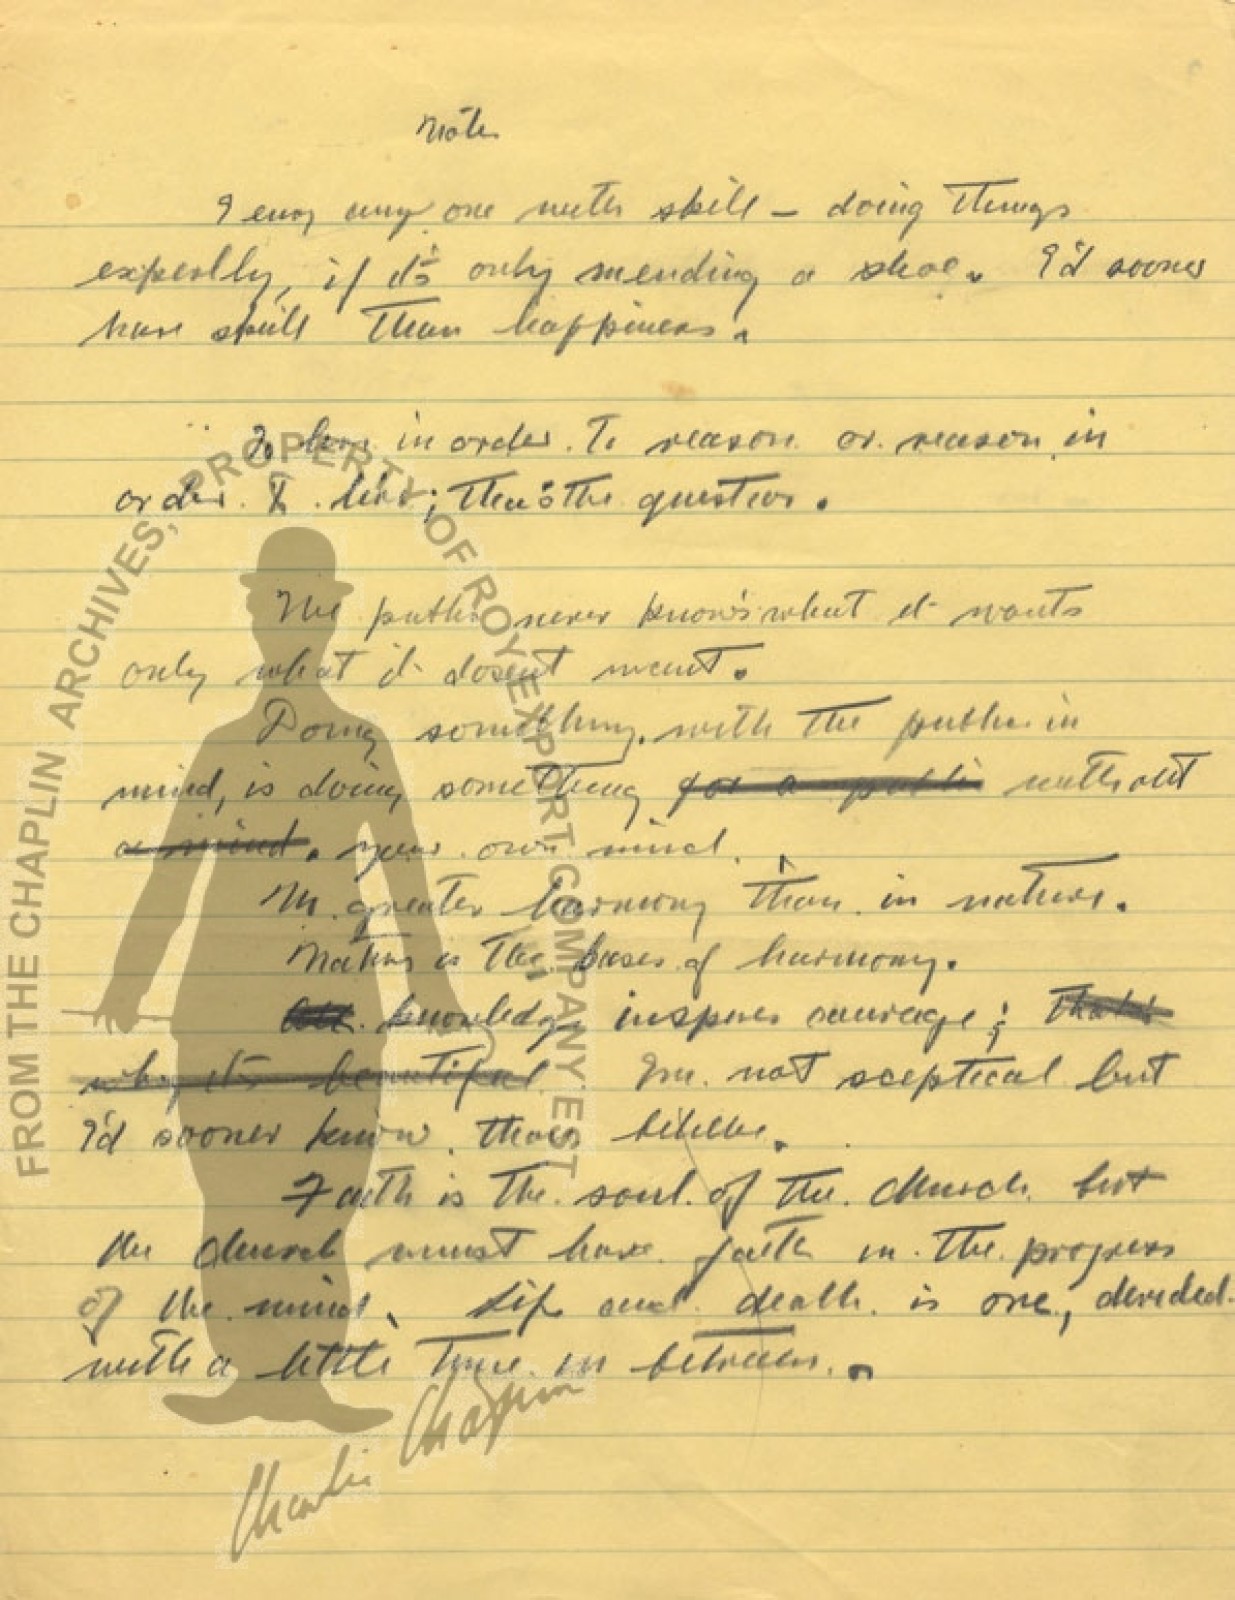 Notes
I envy any one with skill – doing things
expertly, if it's only mending a shoe. I'd sooner
have skill than happiness.
To live in order to reason or reason in
order to live; that's the question.
The public never know's what it wants
only what it dosent want.
Doing something with the public in
mind, is doing something for a public without
a mind. your own mind.
No greater harmony than in nature.
is the bases of harmony.
knowledge inspires courage; that's
why it's beautiful I'm not sceptical but
I'd sooner know than believe.
Faith is the soul of the church but
the church must have faith in the progress
of the mind. Life and death is one, divided
with a little time in between.
FROM THE CHAPLIN ARCHIVES, PROPERTY OF ROY EXPORT COMPANY EST
Charlie Chaplin